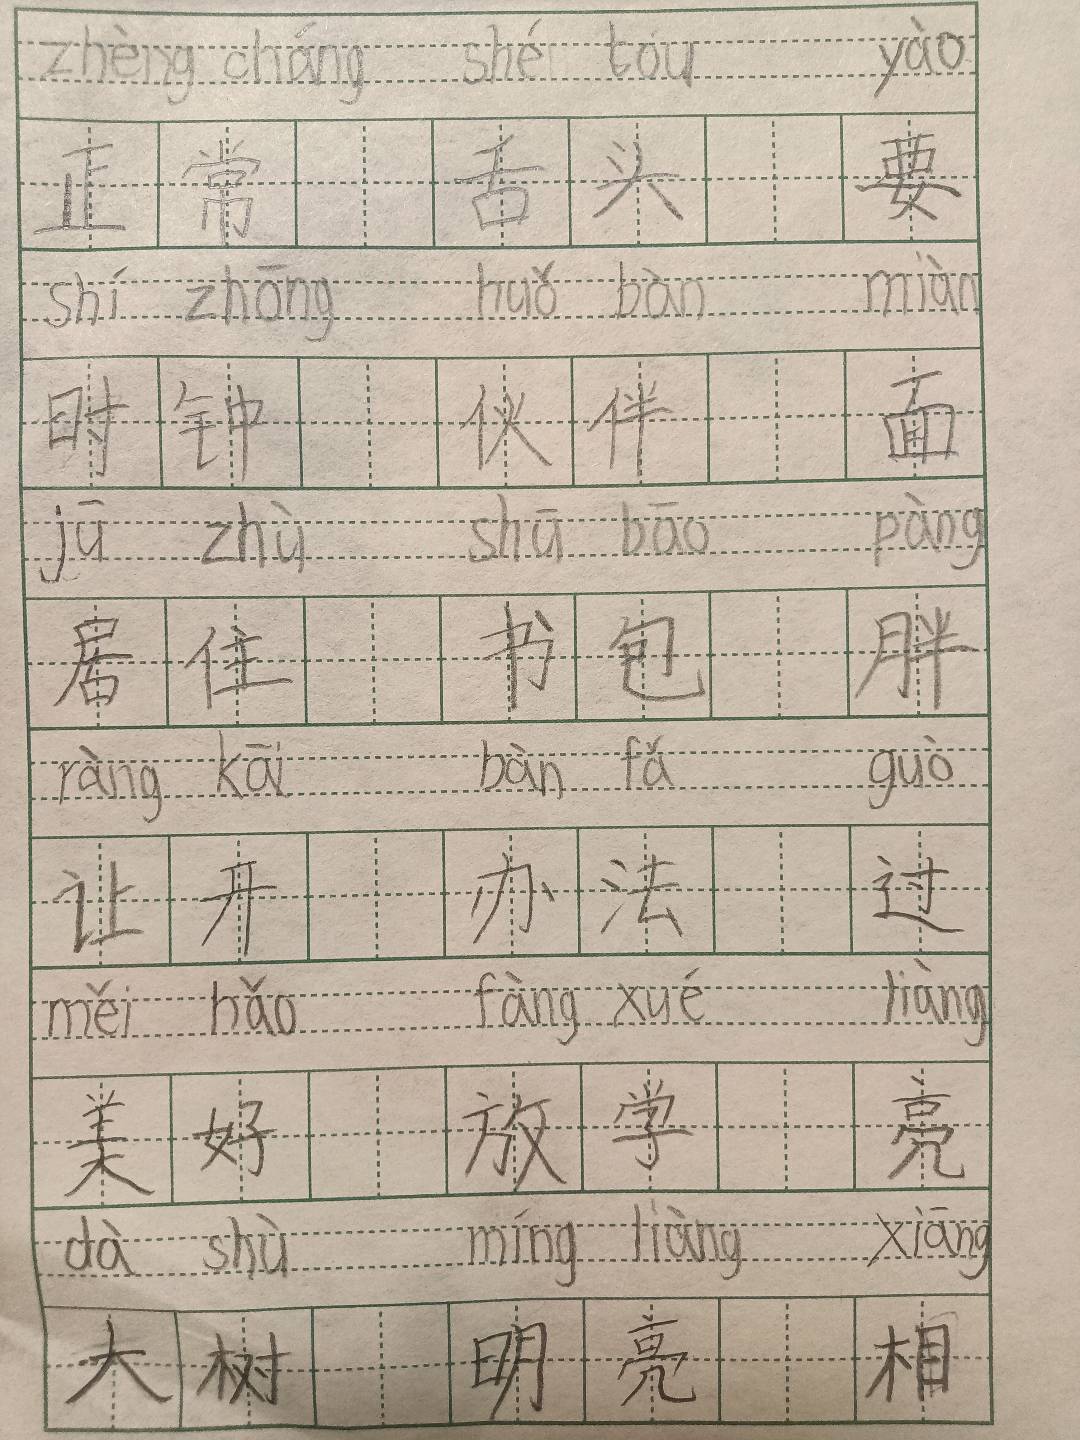 zhèng cháng shé tóu yào
正常 舌头 要
shí zhōng huǒ bàn miàn
时钟 伙伴 面
jū zhù shū bāo pàng
居住 书包 胖
ràng kāi bàn fǎ guò
让开 办法 过
měi hǎo fàng xué liàng
美好 放学 亮
dà shù míng liàng xiāng
大树 明亮 相